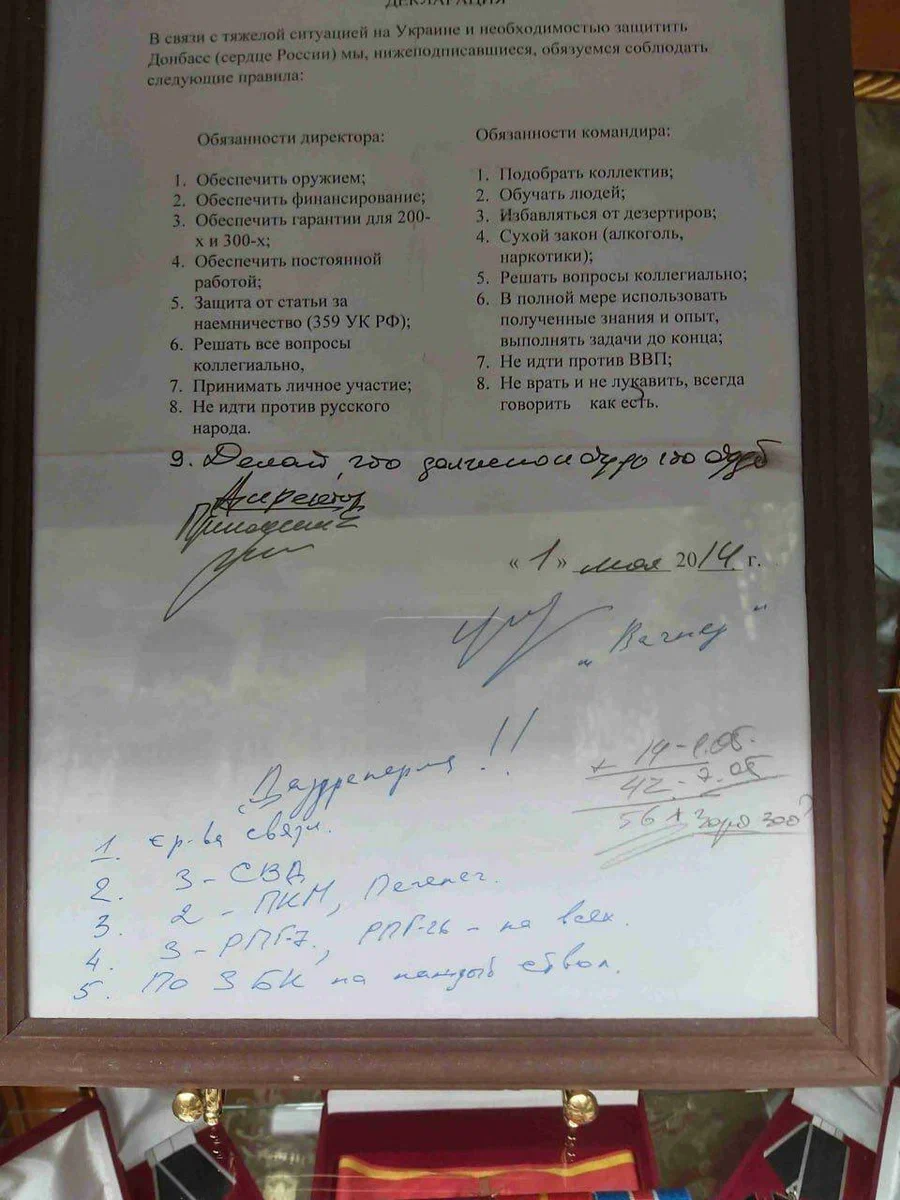 ДЕКЛАРАЦИЯ
В связи с тяжелой ситуацией на Украине и необходимостью защитить
Донбасс (сердце России) мы, нижеподписавшиеся, обязуемся соблюдать
следующие правила:
Обязанности директора:
1. Обеспечить оружием;
2. Обеспечить финансирование;
3. Обеспечить гарантии для 200-
х и 300-х;
4. Обеспечить постоянной
работой;
5. Защита от статьи за
наемничество (359 УК РФ);
6. Решать все вопросы
коллегиально,
7. Принимать личное участие;
8. Не идти против русского
народа.
Обязанности командира:
1. Подобрать коллектив;
2. Обучать людей;
3. Избавляться от дезертиров;
4. Сухой закон (алкоголь,
наркотики);
5. Решать вопросы коллегиально;
6. В полной мере использовать
полученные знания и опыт,
выполнять задачи до конца;
7. Не идти против ВВП;
8. Не врать и не лукавить, всегда
говорить как есть.
9. Делай, что должно и будь что будет
Директор
Пригожин Е
« 1 » мая 2014 г.
„Вагнер“
+ 14 - 1.05.
42 - 7.05
56
1. ср-ва связи.
2. 3 - СВД
3. 2 - ПКМ, Печенег.
4. 3 - РПГ-7, РПГ-26 - на всех.
5. По 3 БК на каждый ствол.